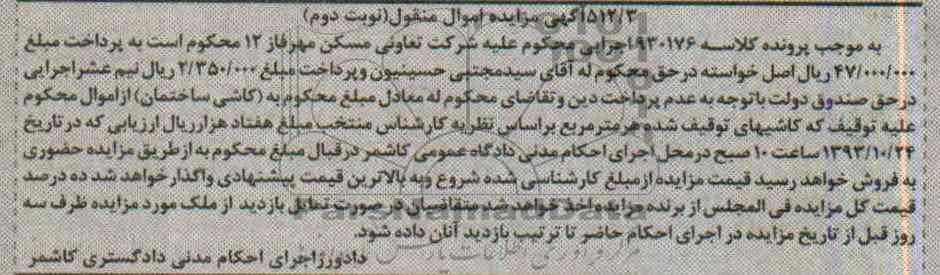 ۵۱۲/۳آگهی مزایده اموال منقول(نوبت دوم)
به موجب پرونده کلاسه ۹۳۰۱۷۶اجرایی محکوم علیه شرکت تعاونی مسکن مهرفاز ۱۲ محکوم است به پرداخت مبلغ
۴۷/۰۰۰/۰۰۰ ریال اصل خواسته درحق محکوم له آقای سیدمجتبی حسینیون وپرداخت مبلغ ۲/۳۵۰/۰۰۰ ریال نیم عشراجرایی
درحق صندوق دولت باتوجه به عدم پرداخت دین وتقاضای محکوم له معادل مبلغ محکوم به (کاشی ساختمان) ازاموال محکوم
علیه توقیف که کاشیهای توقیف شده هرمترمربع براساس نظریه کارشناس منتخب مبلغ هفتاد هزارریال ارزیابی که درتاریخ
۱۳۹۳/۱۰/۲۴ساعت ۱۰ صبح درمحل اجرای احکام مدنی دادگاه عمومی کاشمر درقبال مبلغ محکوم به ازطریق مزایده حضوری
به فروش خواهد رسید قیمت مزایده ازمبلغ کارشناسی شده شروع وبه بالاترین قیمت پیشنهادی واگذارخواهد شد ده درصد
قیمت کل مزایده فی المجلس از برنده مزایده اخذ خواهد شد متقاضیان در صورت تمایل بازدید از ملک مورد مزایده ظرف سه
روز قبل از تاریخ مزایده در اجرای احکام حاضر تا ترتیب بازدید آنان داده شود.
دادورزاجرای احکام مدنی دادگستری کاشمر
ParsNamadData